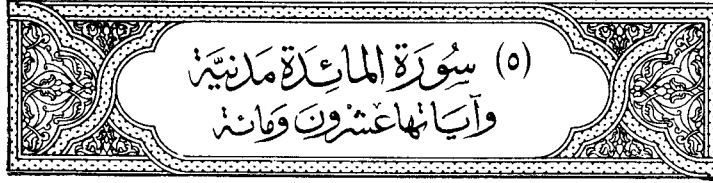 (٥) سُورَة المائِدَة مَدَنيَّة
وَآيَاتها عشرُونَ وَمائة